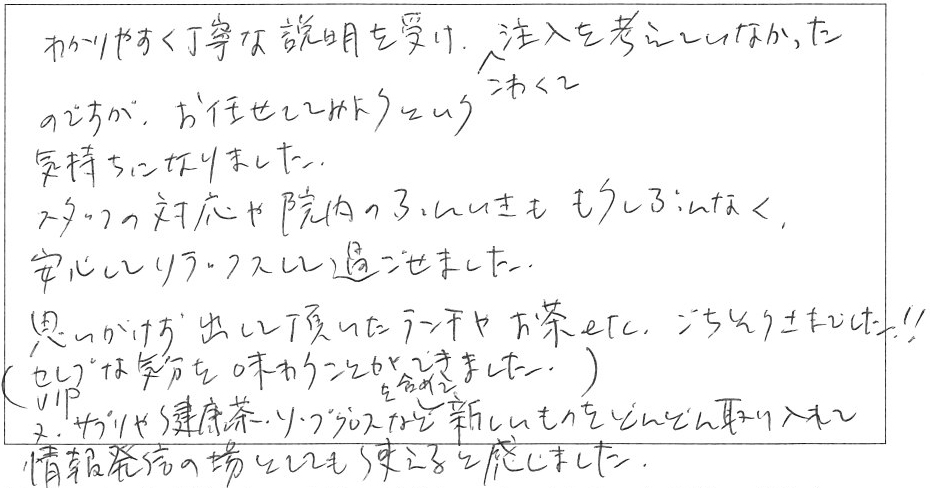 わかりやすく丁寧な説明を受け、注入を考えていなかった
こわくて
のですが、お任せしてみようという
気持ちになりました。
スタッフの対応や院内のふんいきももうしぶんなく、
安心してリラックスして過ごせました。
思いがけず出して頂いたランチやお茶etc. ごちそうさまでした!!
(セレブな気分を味わうことができました。)
VIP
を含めて
又、サプリや健康茶・ソープなど新しいものをどんどん取り入れて
情報発信の場としても使えると感じました。